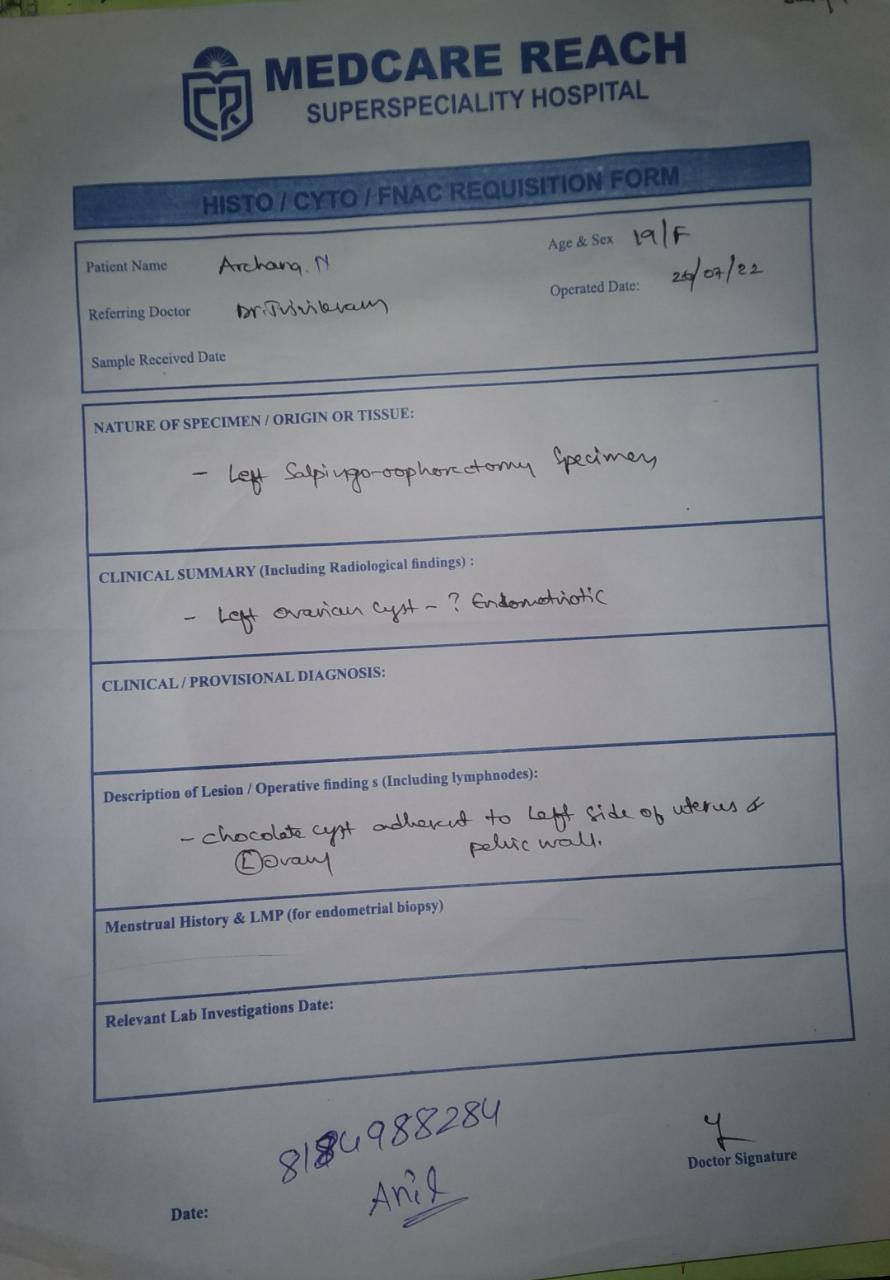 MEDCARE REACH
SUPERSPECIALITY HOSPITAL
HISTO / CYTO / FNAC REQUISITION FORM
Patient Name Archana. N Age & Sex 19/F
Referring Doctor Operated Date: 26/07/22
Sample Received Date
NATURE OF SPECIMEN / ORIGIN OR TISSUE:
- Left Salpingo-oophorectomy Specimen
CLINICAL SUMMARY (Including Radiological findings) :
- Left ovarian cyst - ? Endometriotic
CLINICAL / PROVISIONAL DIAGNOSIS:
Description of Lesion / Operative finding s (Including lymphnodes):
- chocolate cyst adherent to Left side of uterus &
(L) ovary pelvic wall.
Menstrual History & LMP (for endometrial biopsy)
Relevant Lab Investigations Date:
8184988284
Anil
Doctor Signature
Date: